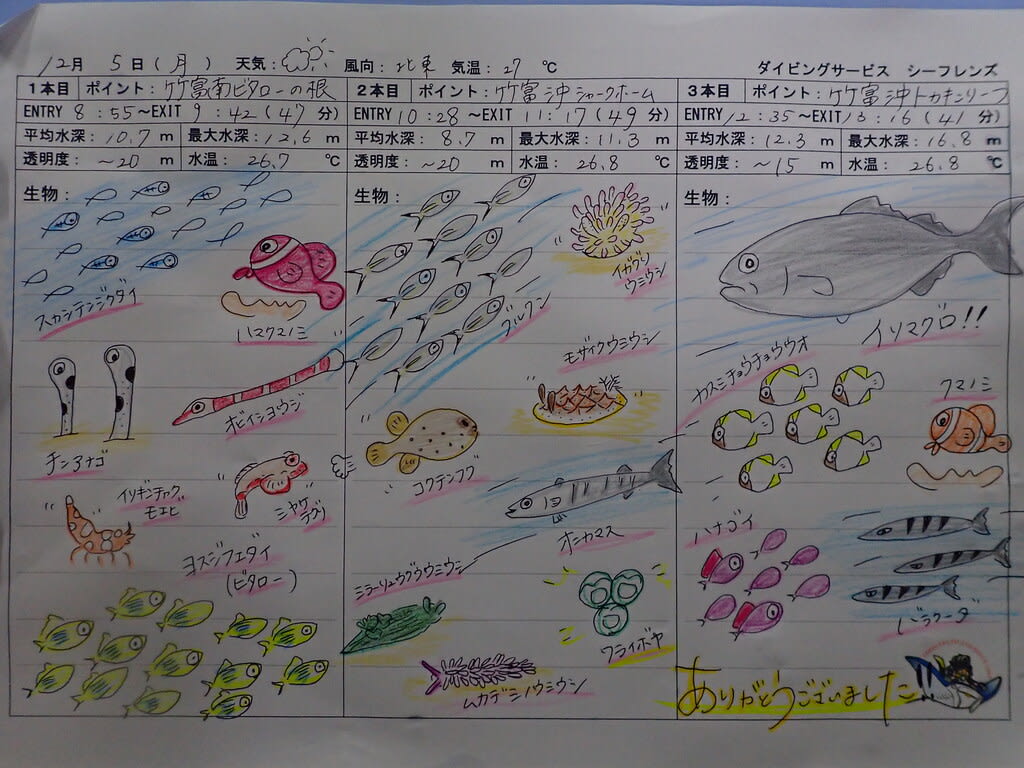 12月 5日(月) 天気: 風向:北東 気温:27 ℃
ダイビングサービス シーフレンズ
1本目 ポイント:竹富南ビタローの根
ENTRY 8:55〜EXIT 9:42(47 分)
平均水深:10.7 m 最大水深:12.6 m
透明度:〜20 m 水温:26.7 ℃
生物:
スカシテンジクダイ
ハマクマノミ
オビイシヨウジ
チンアナゴ
イソギンチャク
モエビ
ミヤケ
テグリ
ヨスジフエダイ
(ビタロー)
2本目 ポイント:竹富沖シャークホーム
ENTRY 10:28〜EXIT 11:17(49 分)
平均水深:8.7 m 最大水深:11.3 m
透明度:〜20 m 水温:26.8 ℃
生物:
イガグリ
ウミウシ
グルクン
モザイクウミウシ
コクテンフグ
オニカマス
ミラーリュウグウウミウシ
ワライボヤ
ムカデミノウミウシ
3本目 ポイント:竹富沖トカキンリーフ
ENTRY 12:35〜EXIT 13:16(41 分)
平均水深:12.3 m 最大水深:16.8 m
透明度:〜15 m 水温:26.8 ℃
生物:
イソマグロ!!
カスミチョウチョウウオ
クマノミ
ハナゴイ
バラクーダ
ありがとうございました